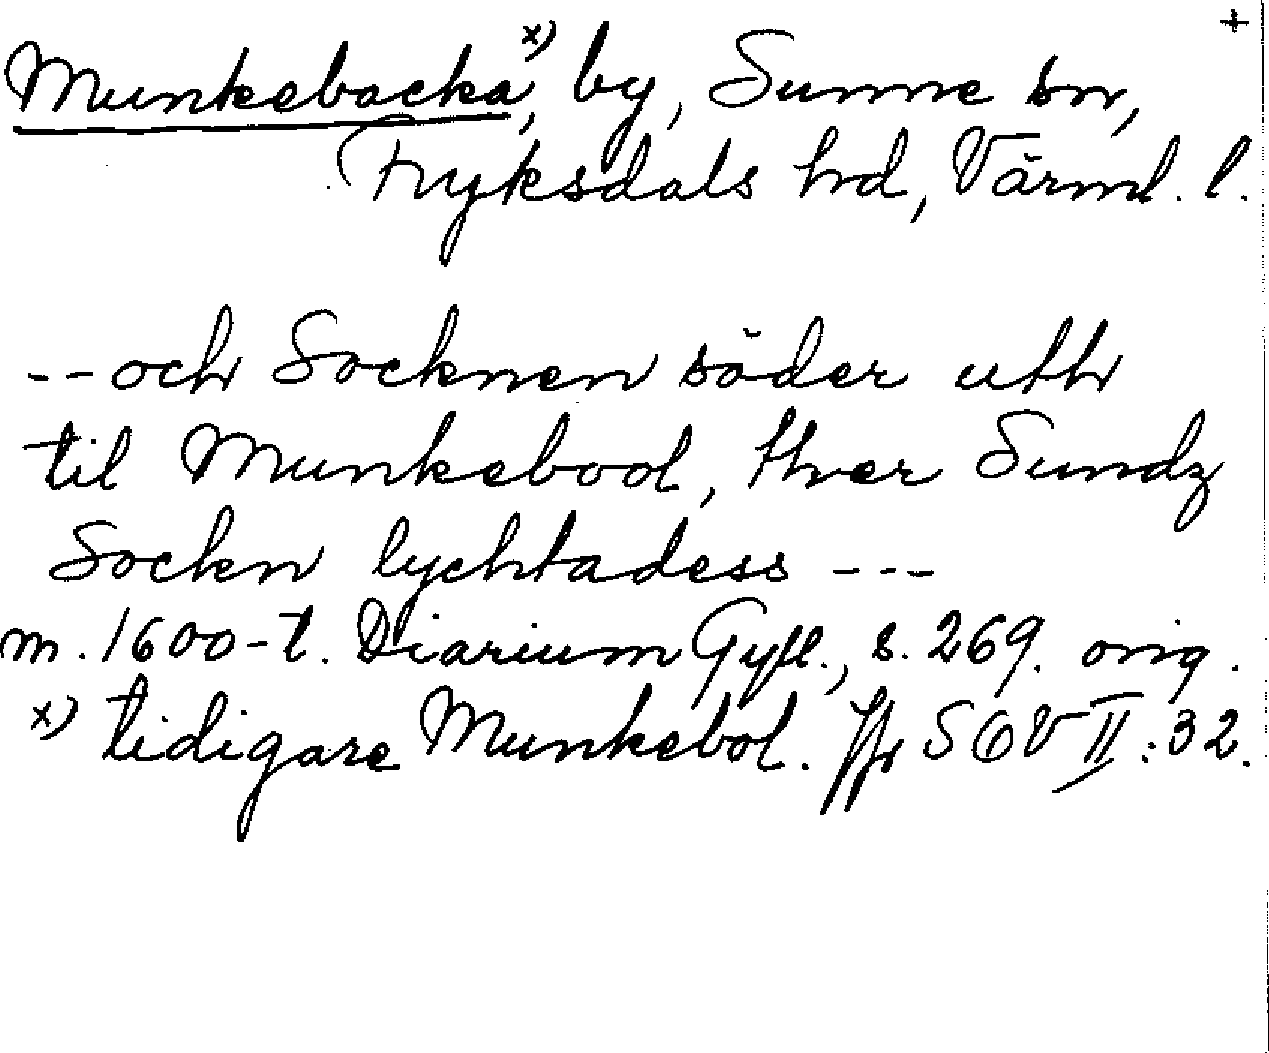 +
Munkebacka x), by, Sunne sn,
Fryksdals hd, Värml. l.
-- och Socknen söder uth
til Munkebool, ther Sundz
Sockn lychtadess ---
m. 1600-t. Diarium Gyll., s. 269. orig.
x) tidigare Munkebol. Jfr SOV II:32.